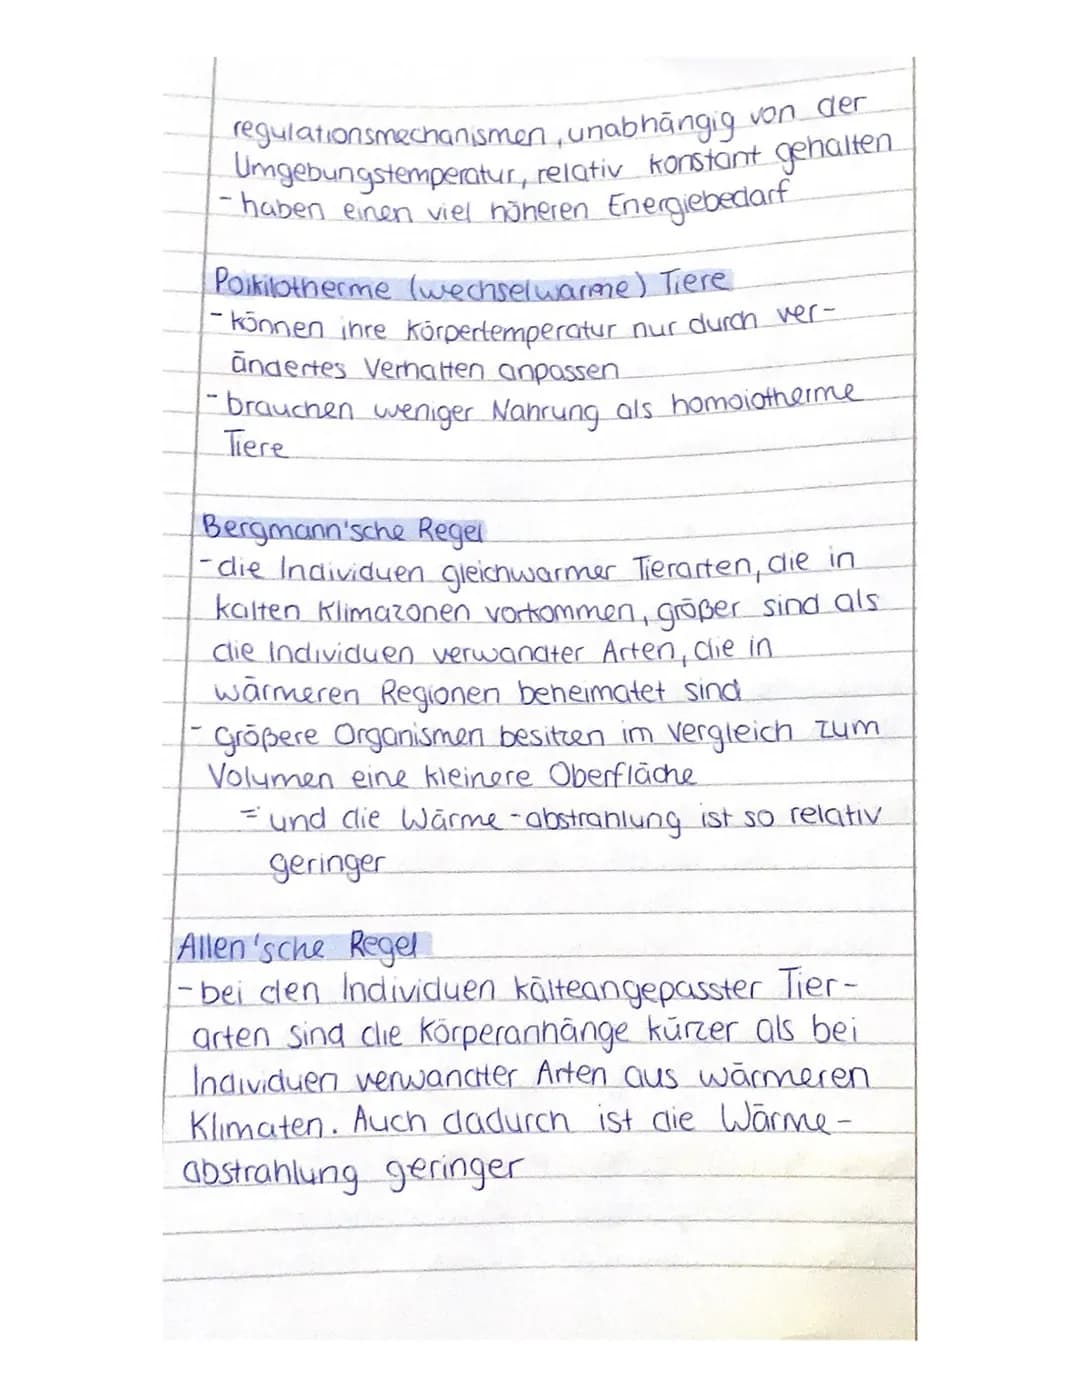 regulationsmechanismen, unabhängig von der
Umgebungstemperatur, relativ konstant gehalten
- haben einen viel höheren Energiebedarf
Poikilotherme (wechselwarme) Tiere
- können ihre Körpertemperatur nur durch ver-
ändertes Verhalten anpassen
- brauchen weniger Nahrung als homoiotherme
Tiere
Bergmann'sche Regel
- die Individuen gleichwarmer Tierarten, die in
kalten Klimazonen vorkommen, größer sind als
die Individuen verwandter Arten, die in
wärmeren Regionen beheimatet sind
- größere Organismen besitzen im Vergleich zum
Volumen eine kleinere Oberfläche
= und die Wärme-abstrahlung ist so relativ
geringer
Allen'sche Regel
- bei den Individuen kälteangepasster Tier-
arten sind die Körperanhänge kürzer als bei
Individuen verwandter Arten aus wärmeren
Klimaten. Auch dadurch ist die Wärme-
abstrahlung geringer